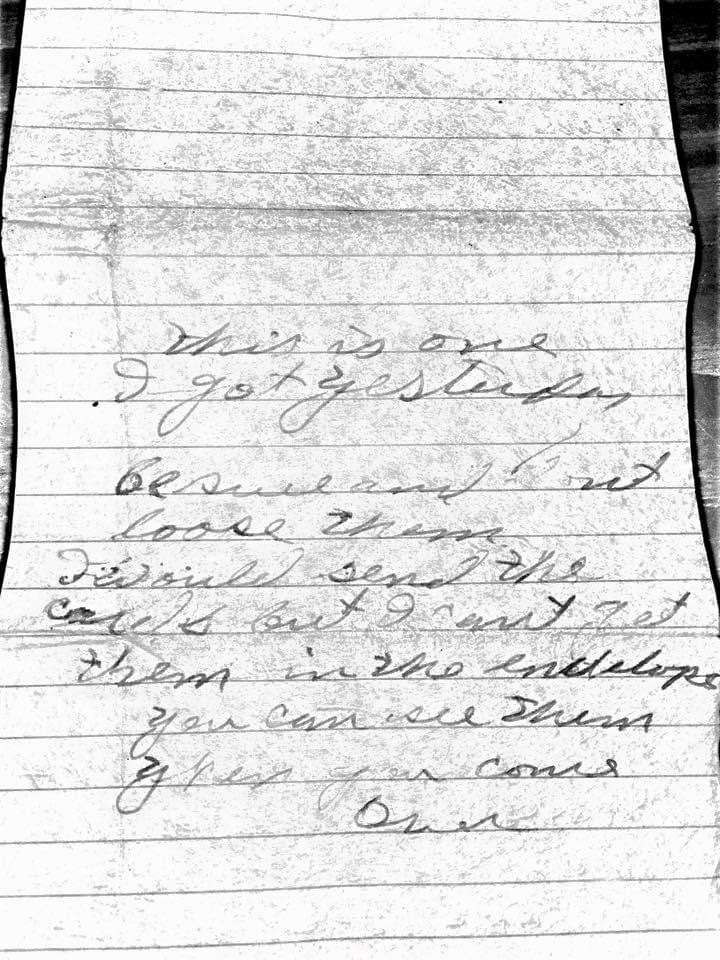 this is one
I got yesterday
Be sure and
loose them
I would send the
cards but I can't get
them in the endelope
you can see them
when you come
Over